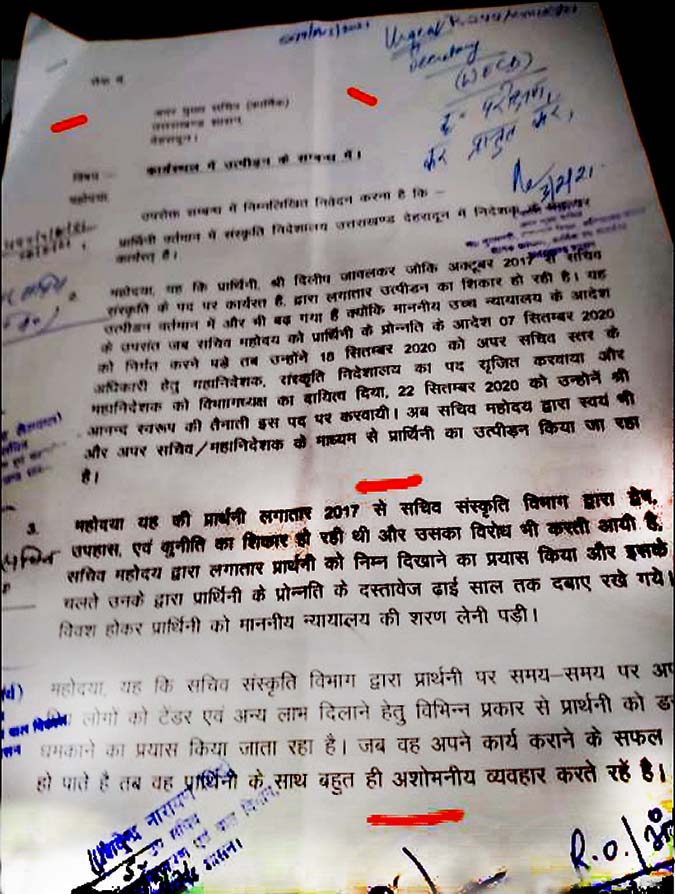 Urgent
Secretary
(WECD)
कृ0 परीक्षण
कर प्रस्तुत करें,
3/2/21
सेवा में,
अपर मुख्य सचिव (कार्मिक)
उत्तराखण्ड शासन,
देहरादून।
विषय - कार्यस्थल में उत्पीड़न के सम्बन्ध में।
महोदया,
उपरोक्त सम्बन्ध में निम्नलिखित निवेदन करना है कि –
प्रार्थिनी वर्तमान में संस्कृति निदेशालय उत्तराखण्ड देहरादून में निदेशक के
कार्यरत है।
2. महोदया, यह कि प्रार्थिनी, श्री दिलीप जावलकर जोकि अक्टूबर 2017 से सचिव
संस्कृति के पद पर कार्यरत है, द्वारा लगातार उत्पीडन का शिकार हो रही है। यह
उत्पीडन वर्तमान में और भी बढ़ गया है क्योंकि माननीय उच्च न्यायालय के आदेश
के उपरांत जब सचिव महोदय को प्रार्थिनी के प्रोन्नति के आदेश 07 सितम्बर 2020
को निर्गत करने पड़े तब उन्होंने 18 सितम्बर 2020 को अपर सचिव स्तर के
अधिकारी हेतु महानिदेशक, संस्कृति निदेशालय का पद सृजित करवाया और
महानिदेशक को विभागाध्यक्ष का दायित्व दिया, 22 सितम्बर 2020 को उन्होनें श्री
आनन्द स्वरूप की तैनाती इस पद पर करवायी। अब सचिव महोदय द्वारा स्वयं भी
और अपर सचिव/महानिदेशक के माध्यम से प्रार्थिनी का उत्पीड़न किया जा रहा
है।
3. महोदया यह की प्रार्थनी लगातार 2017 से सचिव संस्कृति विभाग द्वारा द्वेष,
उपहास, एवं कूनीति का शिकार हो रही थी और उसका विरोध भी करती आयी है,
सचिव महोदय द्वारा लगातार प्रार्थनी को निम्न दिखाने का प्रयास किया और इसके
चलते उनके द्वारा प्रार्थिनी के प्रोन्नति के दस्तावेज ढाई साल तक दबाए रखे गये।
विवश होकर प्रार्थिनी को माननीय न्यायालय की शरण लेनी पड़ी।
महोदया, यह कि सचिव संस्कृति विभाग द्वारा प्रार्थनी पर समय–समय पर अप
लोगों को टेंडर एवं अन्य लाभ दिलाने हेतु विभिन्न प्रकार से प्रार्थनी को डरा
धमकाने का प्रयास किया जाता रहा है। जब वह अपने कार्य कराने के सफल
हो पाते है तब वह प्रार्थिनी के साथ बहुत ही अशोभनीय व्यवहार करते रहें है।
नारायण
सचिव
एवं बाल विकास,
शासन।
R.O./